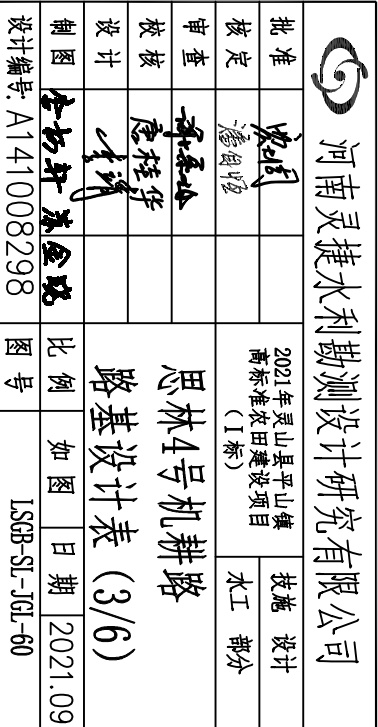 河南灵捷水利勘测设计研究有限公司
批准
核定
审查
校核
设计
制图
2021年灵山县平山镇
高标准农田建设项目
(Ⅰ标)
技施 设计
水工 部分
思林4号机耕路
路基设计表 (3/6)
比例 如图 日期 2021.09
设计编号: A141008298
图号 LSGB-SL-JGL-60